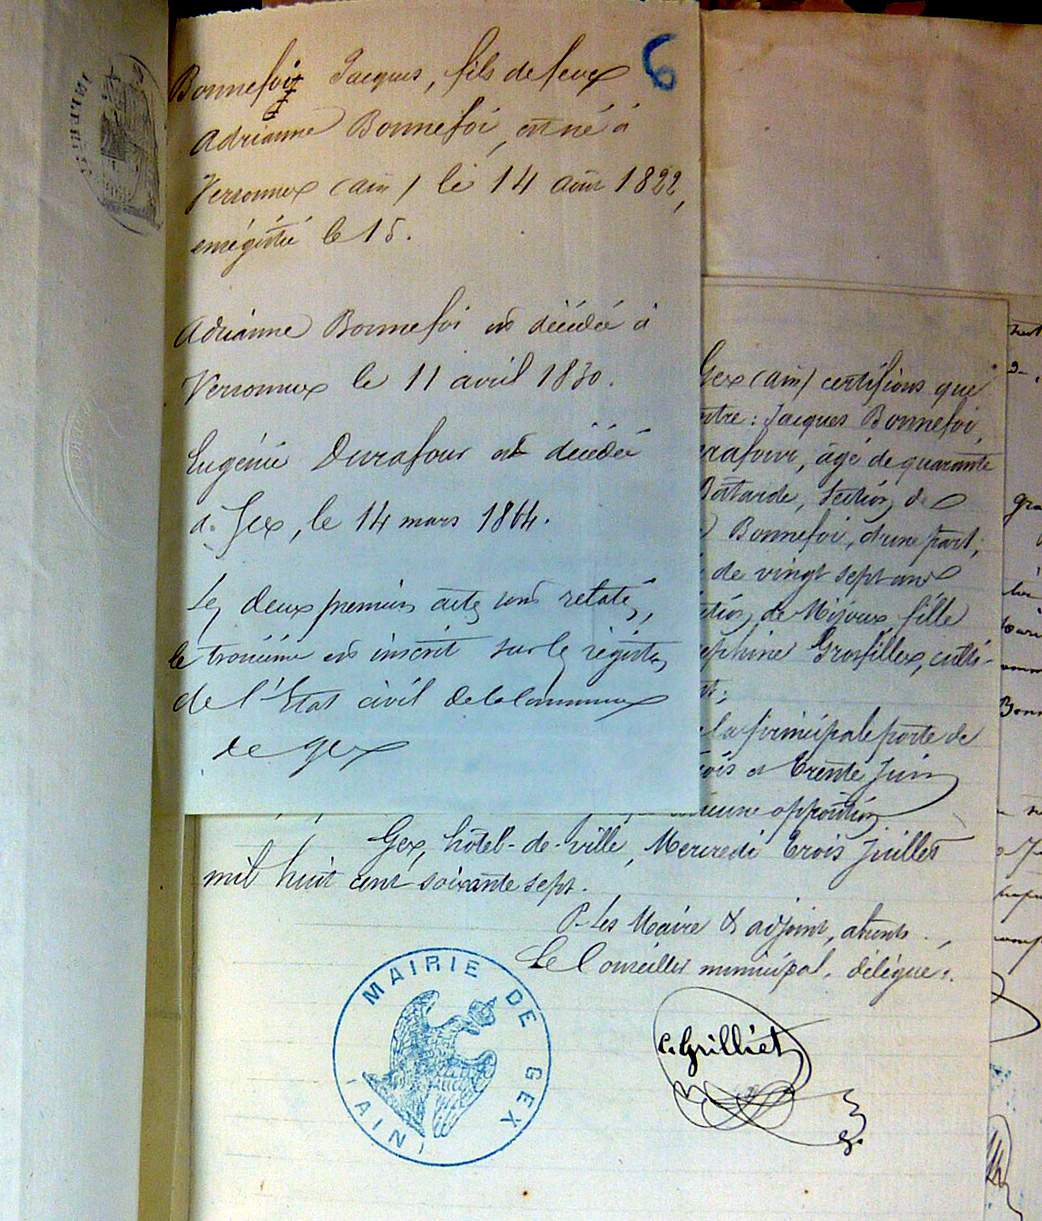 6
Bonnefoi Jacques, fils de feue
Adrianne Bonnefoi, est né à
Versonnex (ain) le 14 août 1822,
enregistré le 15.
Adrianne Bonnefoi est décédée à
Versonnex le 11 avril 1830.
Eugénie Durafour est décédée
à Gex, le 14 mars 1864.
Les deux premiers actes sont relatés,
le troisième est inscrit sur les registres
de l'Etat civil de la Commune
de Gex
Gex (ain) certifions que
entre : Jacques Bonnefoi,
rafour, âgé de quarante
Section de
Bonnefoi, d'une part,
de vingt sept ans
de Mijoux fille
Grosfillex, culti-
la principale porte de
et trente Juin
opposition
Gex, hôtel-de-ville, Mercredi trois Juillet
mil huit cent soixante sept.
P. les Maire & adjoint, absents.,
Le Conseiller municipal, délégué.
C. Grilliet
MAIRIE DE GEX
(AIN)